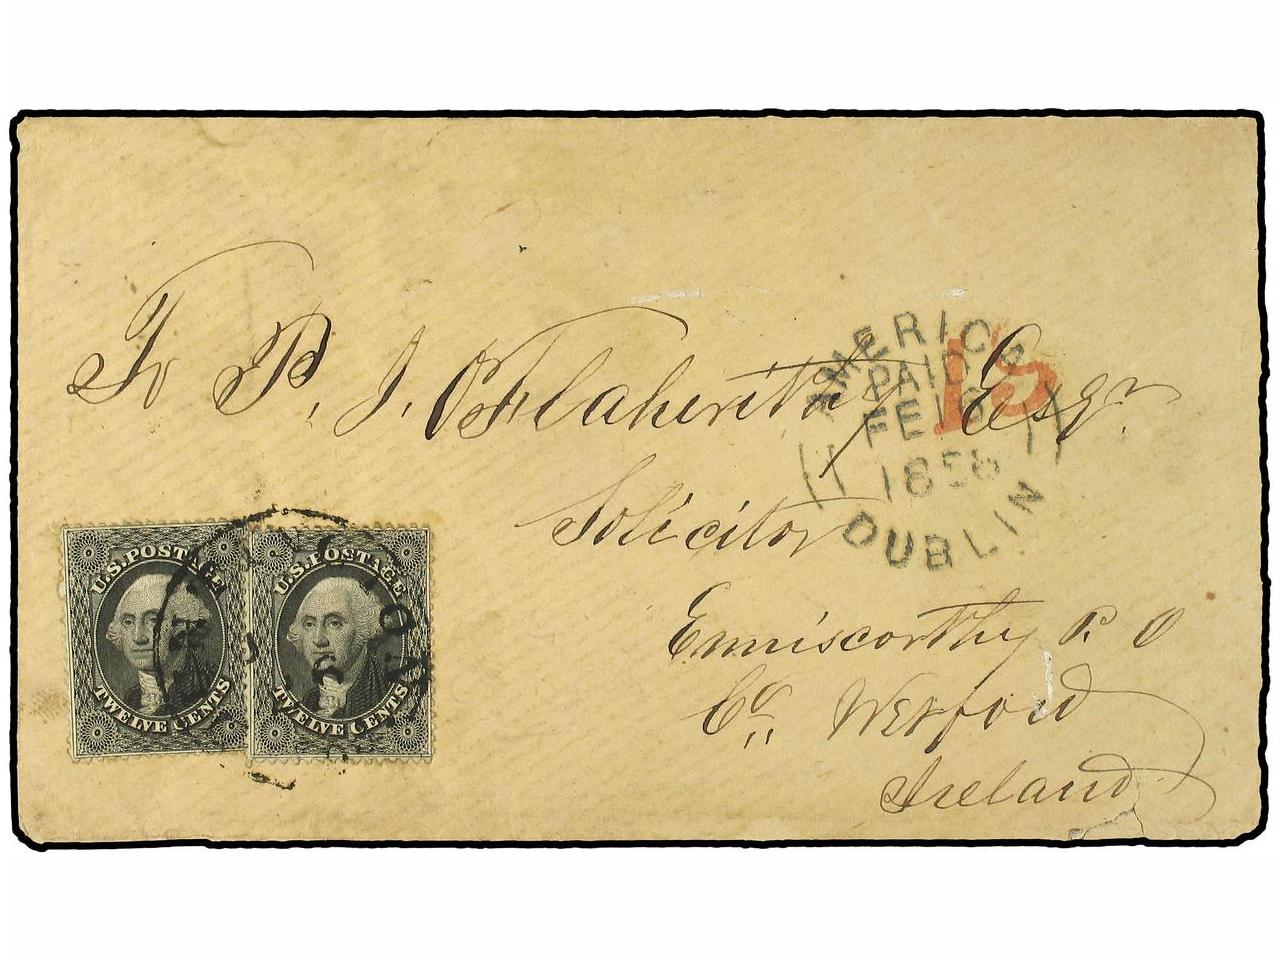 To P. J. O'Flaherity Esqr
Solicitor
Enniscorthy P. O
Co. Wexford
Ireland
AMERICA
PAID
FE 16
1858
DUBLIN
U.S. POSTAGE
TWELVE CENTS
U.S. POSTAGE
TWELVE CENTS